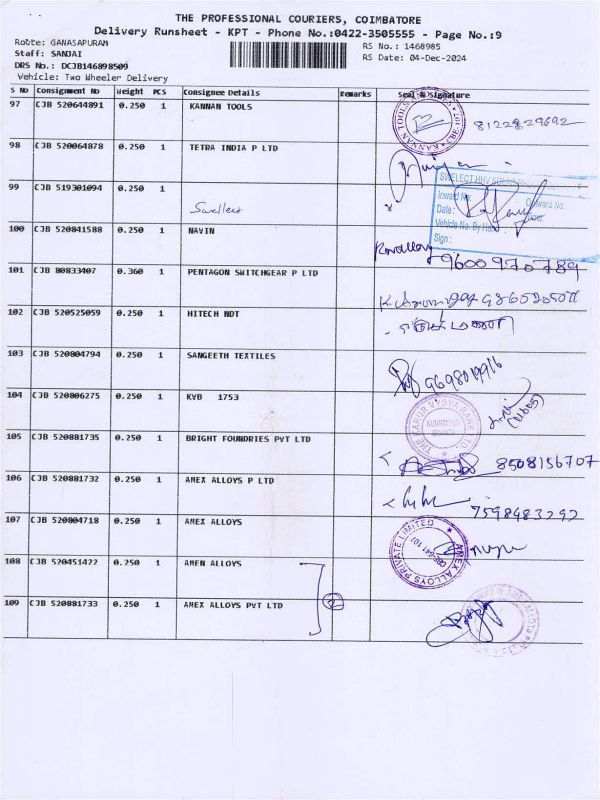 THE PROFESSIONAL COURIERS, COIMBATORE
Delivery Runsheet - KPT - Phone No.:0422-3505555 - Page No.:9
Route: GANASAPURAM
Staff: SANJAI
DRS No.: DCJB146898509
Vehicle: Two Wheeler Delivery
RS No.: 1468985
RS Date: 04-Dec-2024
S No Consignment No Weight PCS Consignee Details Remarks Seal & Signature
97 CJB 520644891 0.250 1 KANNAN TOOLS 8122829692
98 CJB 520064878 0.250 1 TETRA INDIA P LTD
99 CJB 519301094 0.250 1
Swellect
Inward No:
Date:
Vehicle No. By Hand
Sign:
100 CJB 520841588 0.250 1 NAVIN
9600970789
101 CJB 80833407 0.360 1 PENTAGON SWITCHGEAR P LTD
102 CJB 520525059 0.250 1 HITECH NDT
103 CJB 520804794 0.250 1 SANGEETH TEXTILES
104 CJB 520806275 0.250 1 KVB 1753
THE KARUR VYSYA BANK LTD
105 CJB 520881735 0.250 1 BRIGHT FOUNDRIES PVT LTD
8508156707
106 CJB 520881732 0.250 1 AMEX ALLOYS P LTD
107 CJB 520804718 0.250 1 AMEX ALLOYS
AMEX ALLOYS PRIVATE LIMITED
108 CJB 520451422 0.250 1 AMEN ALLOYS
109 CJB 520881733 0.250 1 AMEX ALLOYS PVT LTD